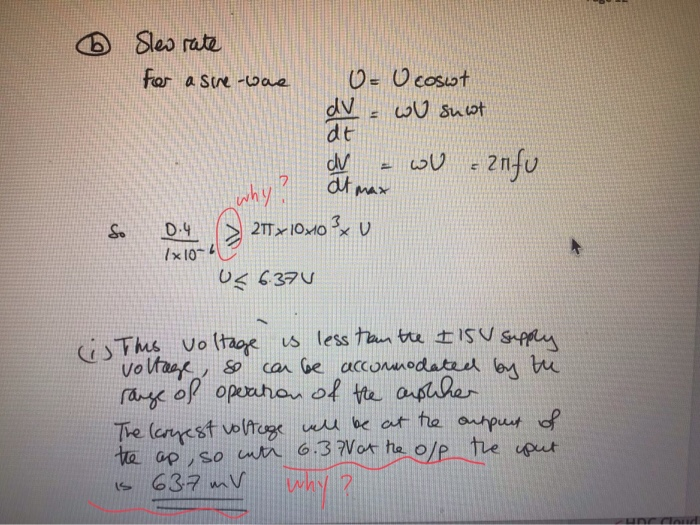 (b) Slew rate
For a sine-wave U = U cosωt
dV/dt = ωU sinωt
dV/dt max = ωU = 2πfU
why?
So 0.4/1×10⁻⁶ ⩾ 2π×10×10³× U
U ≤ 6.37V
(i) This voltage is less than the ±15V supply
voltage, so can be accommodated by the
range of operation of the amplifier
The largest voltage will be at the output of
the ap, so with 6.37V at the o/p the input
is 637mV why?